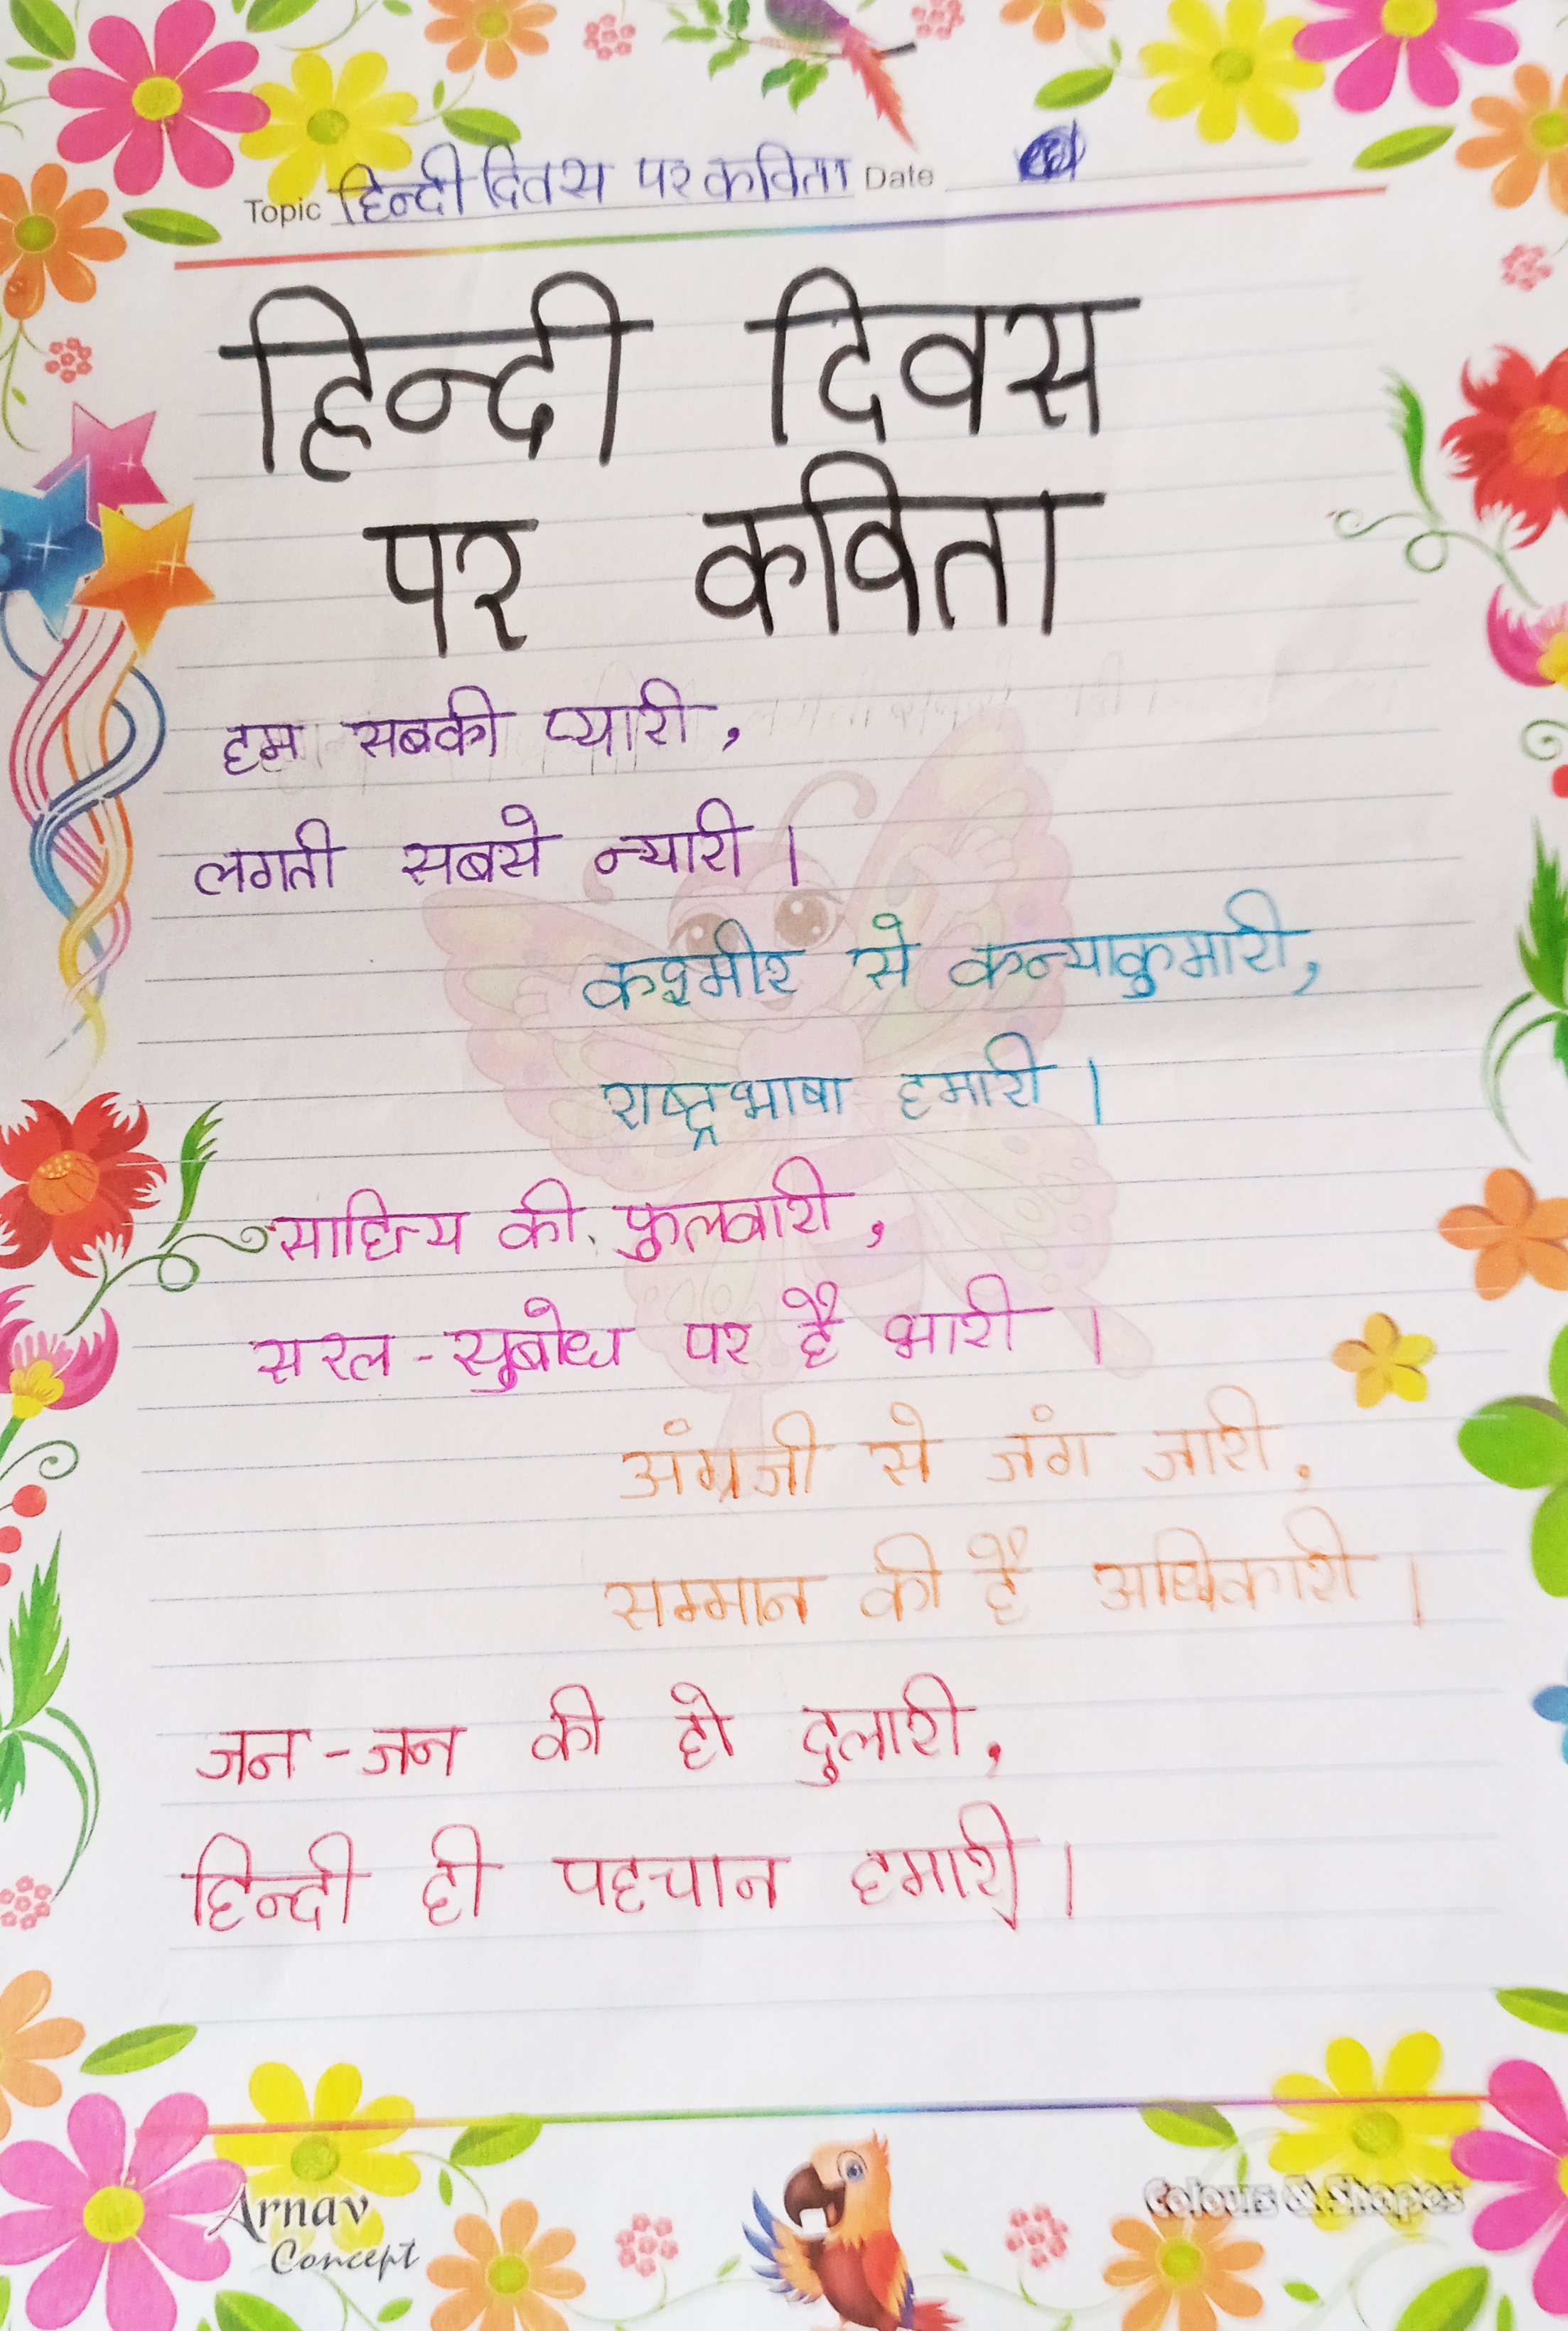 Topic हिन्दी दिवस पर कविता Date
हिन्दी दिवस
पर कविता
हम सबकी प्यारी,
लगती सबसे न्यारी।
कश्मीर से कन्याकुमारी,
राष्ट्रभाषा हमारी।
साहित्य की फुलवारी,
सरल-सुबोध पर है भारी।
अंग्रजी से जंग जारी,
सम्मान की है अधिकारी।
जन-जन की हो दुलारी,
हिन्दी ही पहचान हमारी।
Arnav
Concept
Colours & Shapes